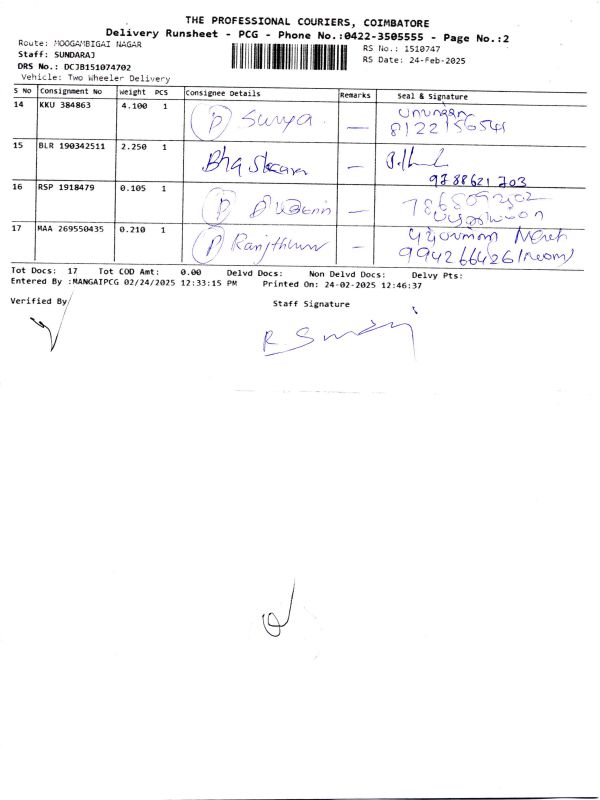 THE PROFESSIONAL COURIERS, COIMBATORE
Delivery Runsheet - PCG - Phone No.:0422-3505555 - Page No.:2
Route: MOOGAMBIGAI NAGAR
Staff: SUNDARAJ
DRS No.: DCJB151074702
Vehicle: Two Wheeler Delivery
RS No.: 1510747
RS Date: 24-Feb-2025
S No Consignment No Weight PCS Consignee Details Remarks Seal & Signature
14 KKU 384863 4.100 1 P Surya. —
8122156541
15 BLR 190342511 2.250 1 Bhaskaran —
9788621703
16 RSP 1918479 0.105 1 P —
17 MAA 269550435 0.210 1 P —
9942664261
Tot Docs: 17 Tot COD Amt: 0.00 Delvd Docs: Non Delvd Docs: Delvy Pts:
Entered By :MANGAIPCG 02/24/2025 12:33:15 PM Printed On: 24-02-2025 12:46:37
Verified By
Staff Signature